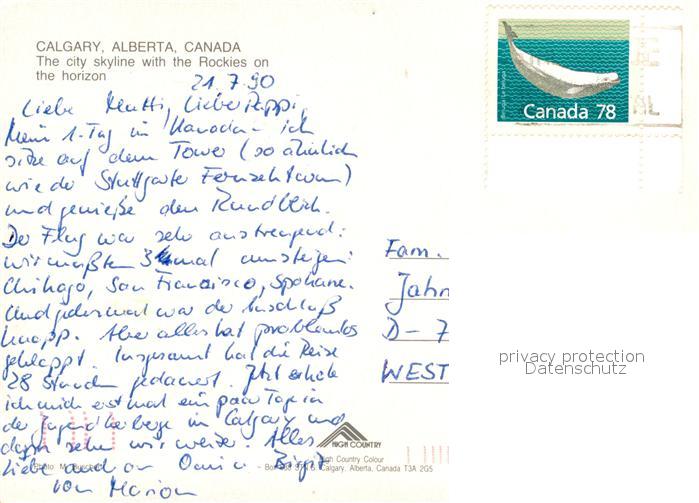 CALGARY, ALBERTA, CANADA
The city skyline with the Rockies on
the horizon
21.7.90
Liebe Mutti, Lieber Pappi,
Mein 1. Tag in Kanada - ich
sitze auf dem Tower (so ähnlich
wie der Stuttgarter Fernsehturm)
und genieße den Rundblick.
Der Flug war sehr anstrengend:
wir mußten 3 mal umsteigen:
Chikago, San Francisco, Spokane.
Und jedesmal war der Anschluß
knapp. Aber alles hat problemlos
geklappt. Insgesamt hat die Reise
28 Stunden gedauert. Jetzt erhole
ich mich erst mal ein paar Tage in
der Jugendherberge in Calgary und
dann sehn wir weiter. Alles
Liebe auch an Omi Birgit
von Marion
Canada 78
Fam.
Jahn
D-7
WEST
privacy protection
Datenschutz
HIGH COUNTRY
High Country Colour
Calgary, Alberta, Canada T3A 2G5
Photo M.